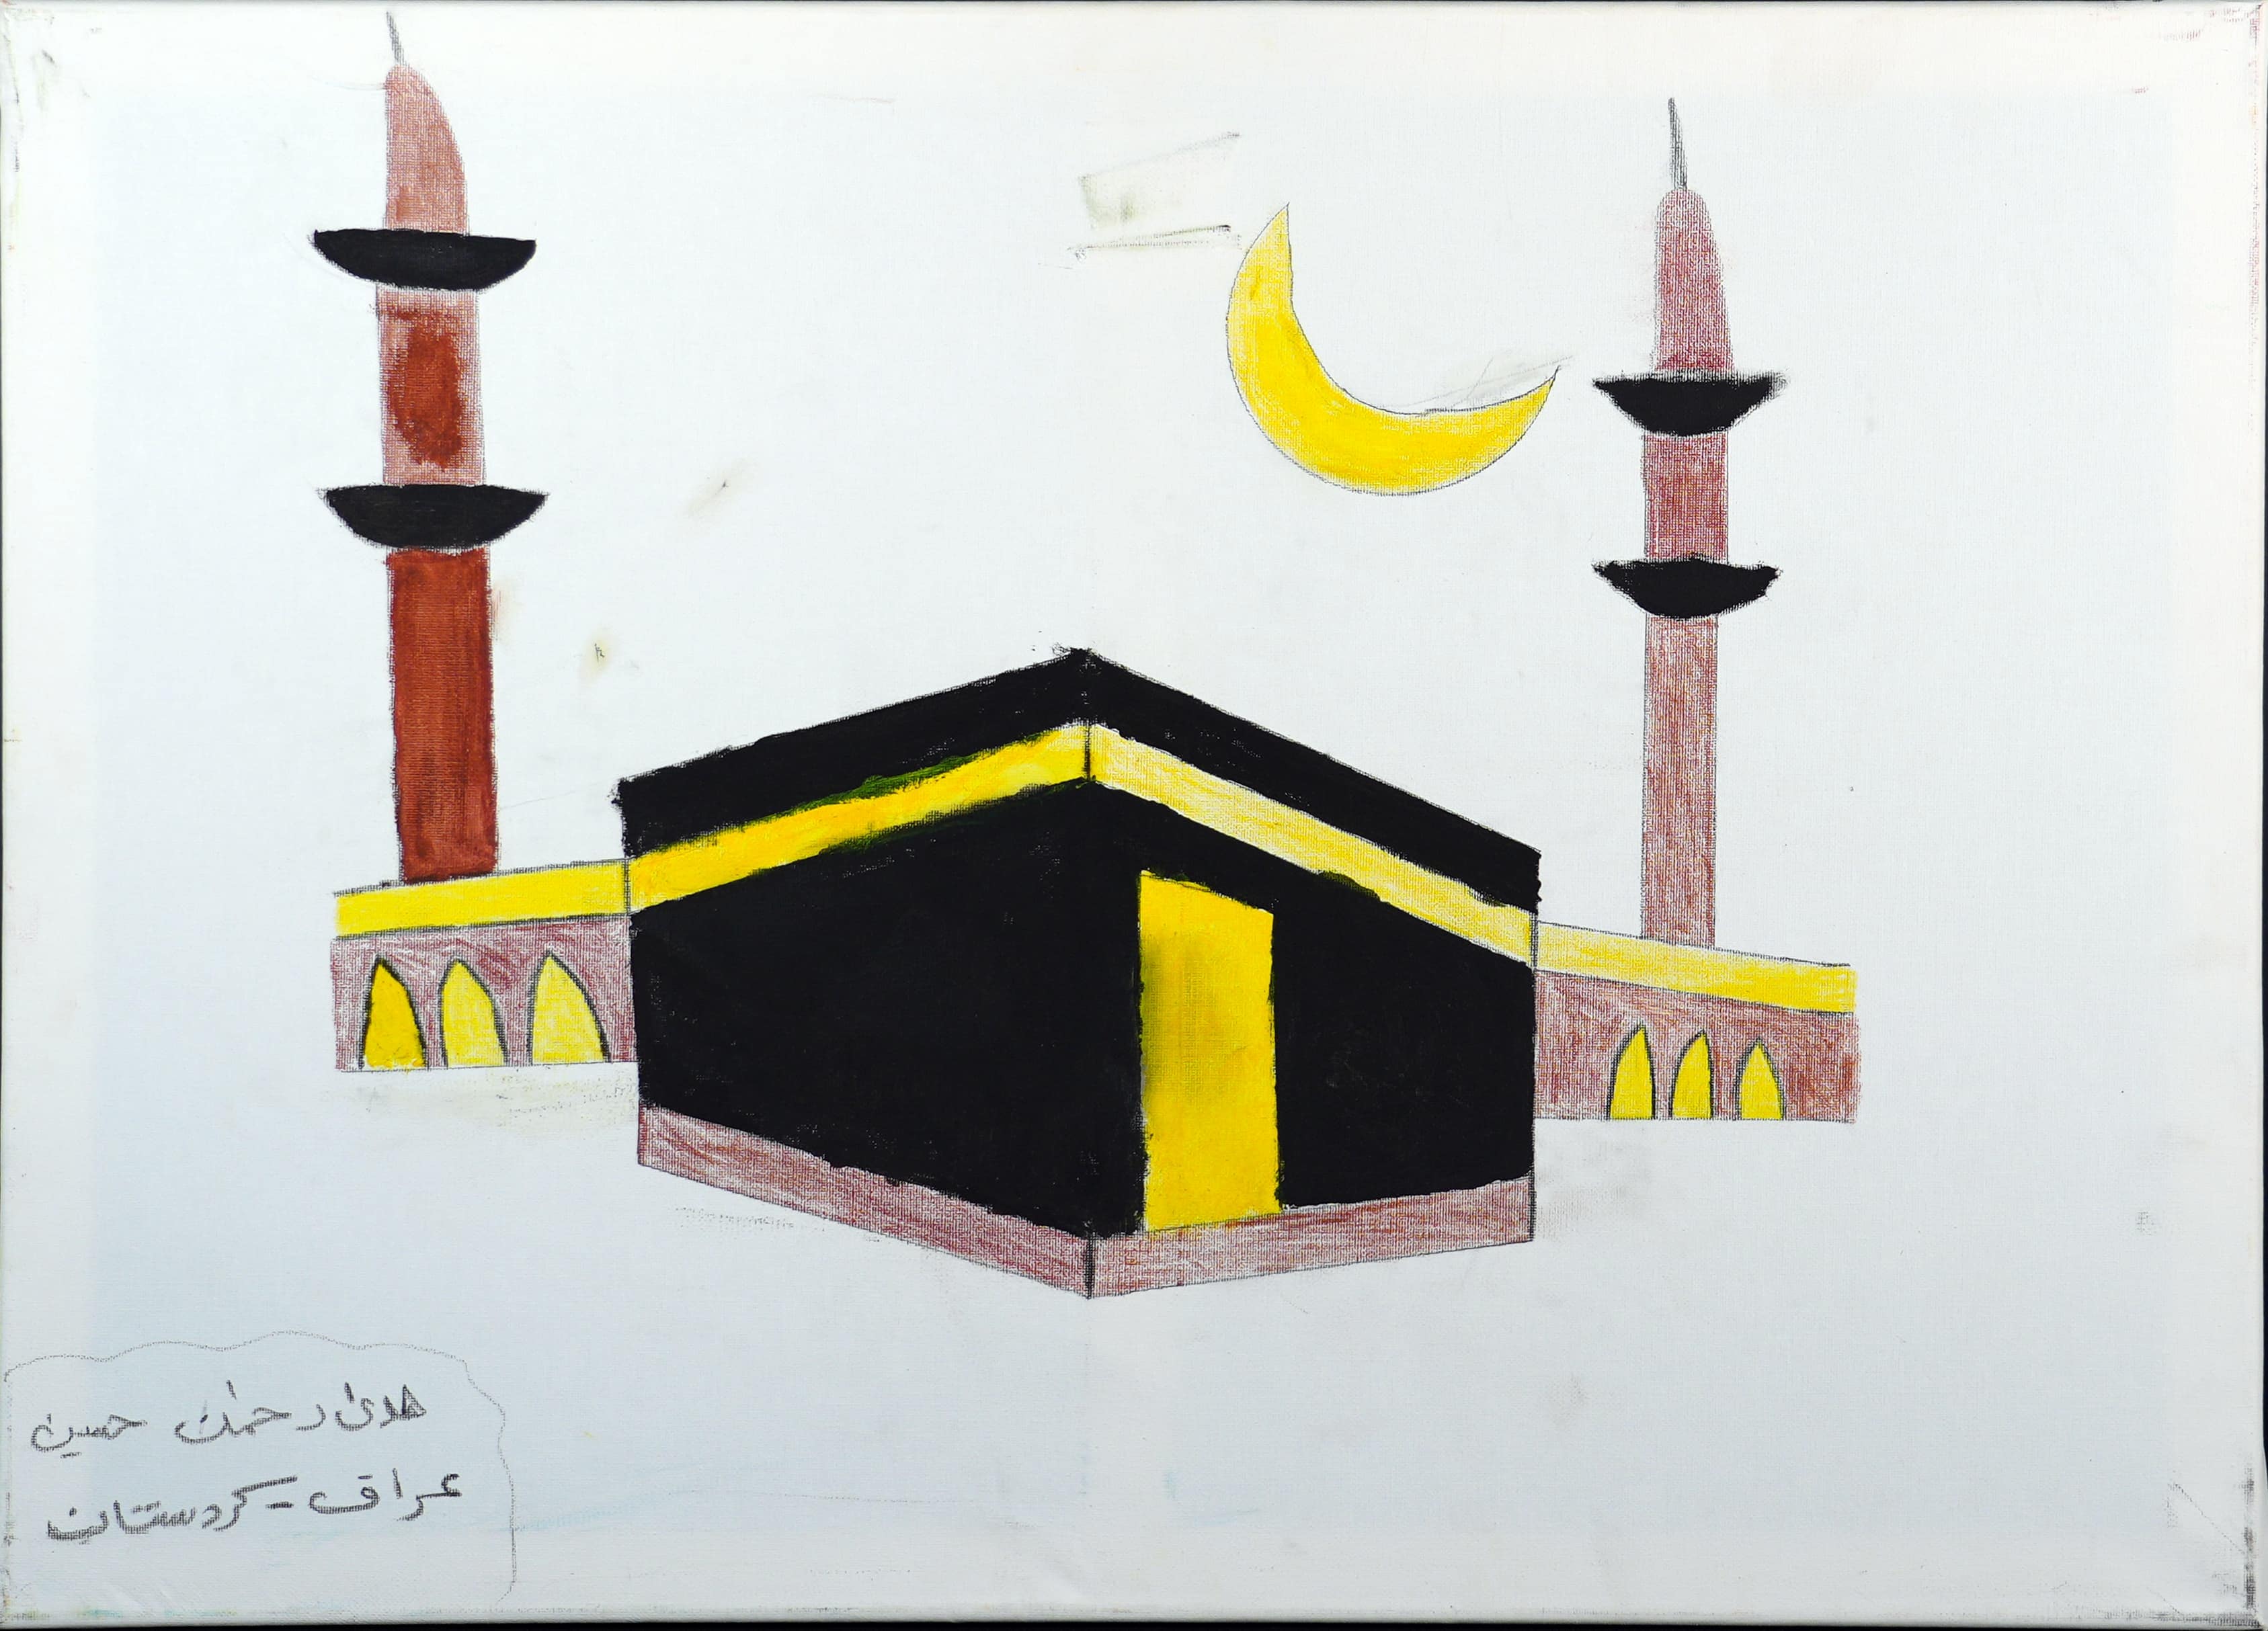 هدى رحمن حسين
عراق - كردستان